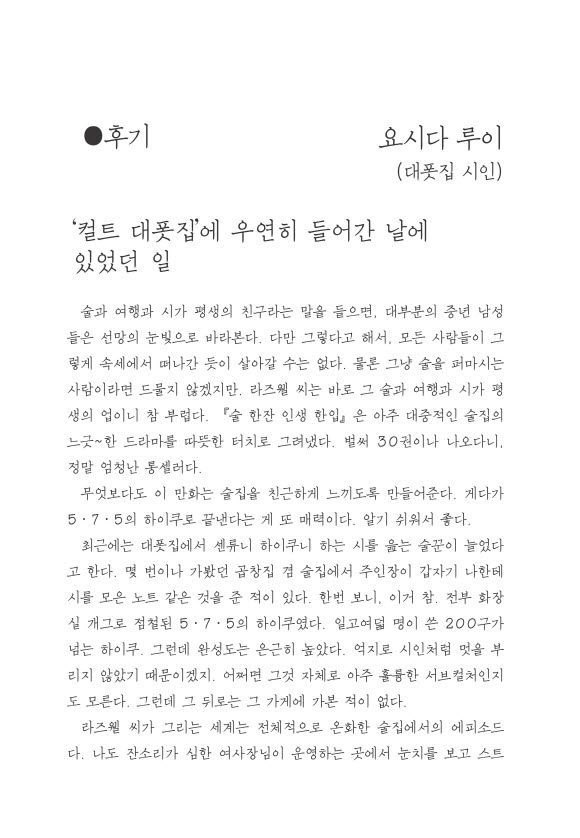 ●후기
요시다 루이
(대폿집 시인)
‘컬트 대폿집’에 우연히 들어간 날에
있었던 일
술과 여행과 시가 평생의 친구라는 말을 들으면, 대부분의 중년 남성
들은 선망의 눈빛으로 바라본다. 다만 그렇다고 해서, 모든 사람들이 그
렇게 속세에서 떠나간 듯이 살아갈 수는 없다. 물론 그냥 술을 퍼마시는
사람이라면 드물지 않겠지만. 라즈웰 씨는 바로 그 술과 여행과 시가 평
생의 업이니 참 부럽다. 『술 한잔 인생 한입』은 아주 대중적인 술집의
느긋~한 드라마를 따뜻한 터치로 그려냈다. 벌써 30권이나 나오다니,
정말 엄청난 롱셀러다.
무엇보다도 이 만화는 술집을 친근하게 느끼도록 만들어준다. 게다가
5·7·5의 하이쿠로 끝낸다는 게 또 매력이다. 알기 쉬워서 좋다.
최근에는 대폿집에서 센류니 하이쿠니 하는 시를 읊는 술꾼이 늘었다
고 한다. 몇 번이나 가봤던 곱창집 겸 술집에서 주인장이 갑자기 나한테
시를 모은 노트 같은 것을 준 적이 있다. 한번 보니, 이거 참. 전부 화장
실 개그로 점철된 5·7·5의 하이쿠였다. 일고여덟 명이 쓴 200구가
넘는 하이쿠. 그런데 완성도는 은근히 높았다. 억지로 시인처럼 멋을 부
리지 않았기 때문이겠지. 어쩌면 그것 자체로 아주 훌륭한 서브컬처인지
도 모른다. 그런데 그 뒤로는 그 가게에 가본 적이 없다.
라즈웰 씨가 그리는 세계는 전체적으로 온화한 술집에서의 에피소드
다. 나도 잔소리가 심한 여사장님이 운영하는 곳에서 눈치를 보고 스트